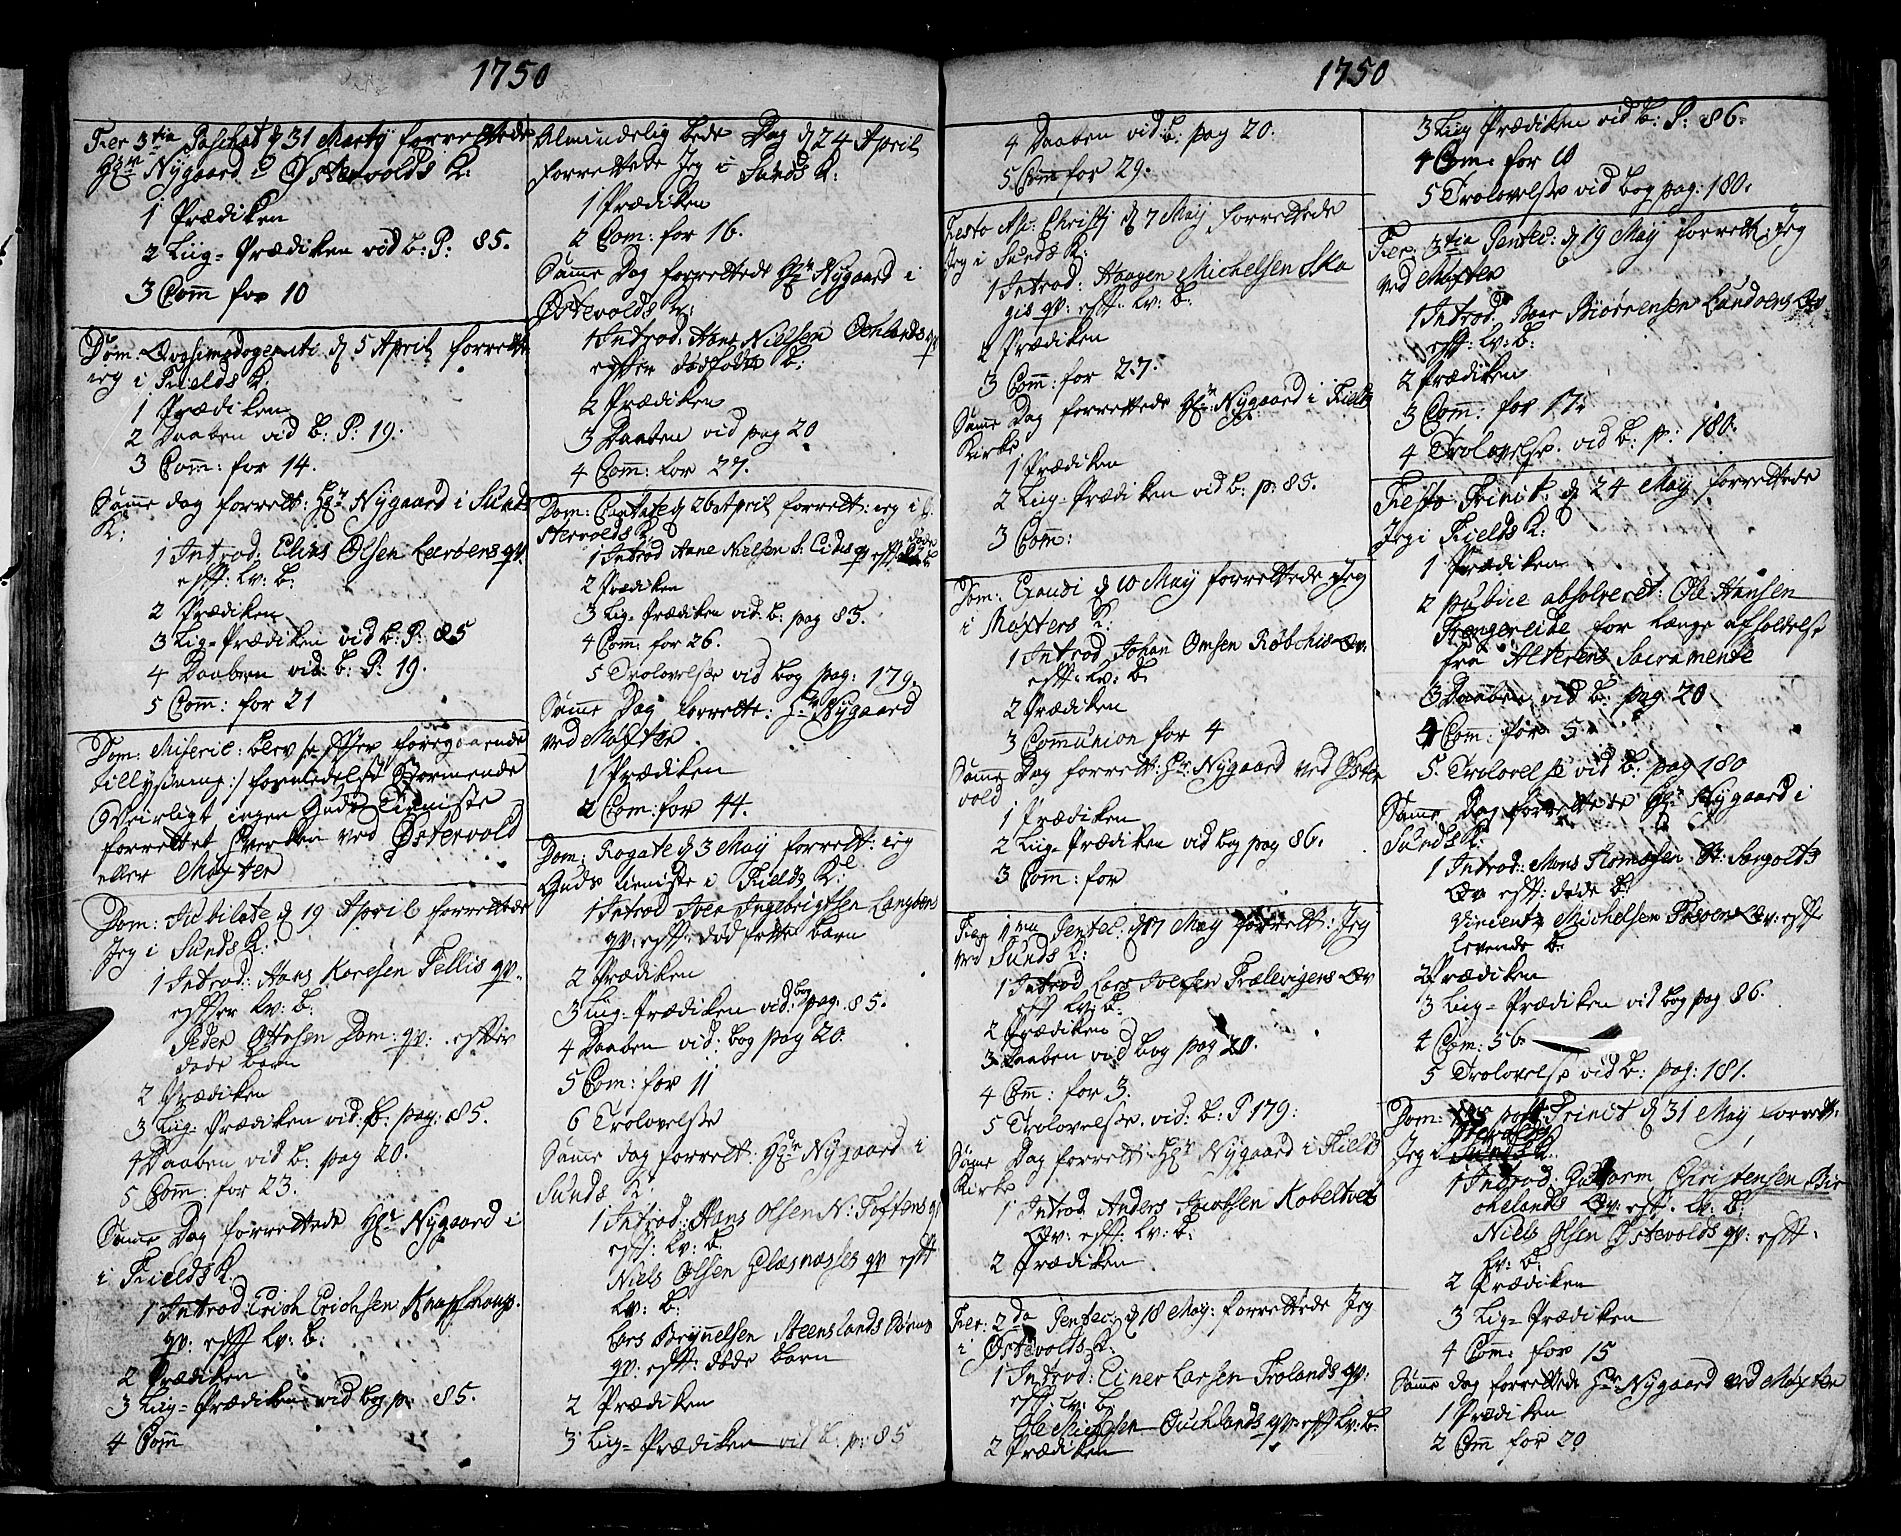 1750
Fer 3tia Paschat d 31 Martij forrettede
Hr Nygaard i Østervolds K:
1 Prædiken
2 Liig-Prædiken vid b: P: 85.
3 Comm for 10
Dom: Qvasimodogeniti d 5 April forrett
ieg i Fields K:
1 Prædiken
2 Daaben vid b: P: 19.
3 Comm: for 14.
Samme dag forrett: Hr Nygaard i Sunds
K:
1 Introd: Elias Olsen Leeröens qv.
efft: lv: b:
2 Prædiken
3 Lig-Prædiken vid b: P: 85
4 Daaben vid b: P: 19.
5 Comm: for 21
Dom: Miseric: blev /: efter foregaaende
tillysning :/ formedelst Stormende
Veirligt ingen Guds Tieniste
forrettet hverken ved Østervold
eller Møxter
Dom: Jubilate d 19 April forrettede
Jeg i Sunds K:
1 Introd: Hans Korssen Tellis qv.
efter lv: b:
Peder Ottesen Dom: qv: efter
døde barn
2 Prædiken
3 Liig-Prædiken vid b: pag: 85.
4 Daaben vid b: pag 20.
5 Comm: for 23.
Samme Dag forrettede Hr Nygaard i
i Fields K.
1 Introd: Erich Erichsen
qv: efft lv: b:
2 Prædiken
3 Liig-Prædiken vid bog p: 85.
4 Comm
Almindelig bede Dag d 24 April
forrettede Jeg i Sunds K:
1 Prædiken
2 Com: for 16.
Samme Dag forrettede Hr Nygaard i
Østevolds K:
1 Introd: Hans Nielsen qv
efter dødfødte b:
2 Prædiken
3 Daaben vid pag 20
4 Comm: for 27.
Dom: Cantate d 26 April forrett: ieg i Ø-
stervolds K:
1 Introd Anne Nielsen S: Eides qv efft døde b
2 Prædiken
3 Lig-Prædiken vid b: pag 85.
4 Com: for 26.
5 Trolovelse vid bog pag: 179.
Samme Dag forrette: Hr Nygaard
ved Møxter
1 Prædiken
2 Com: for 44.
Dom: Rogate d 3 May forrett: ieg
Guds tieniste i Fields K:
1 Introd Iver Ingebrigtsen Langöen
qv: efft: død føtte barn
2 Prædiken
3 Liig-Prædiken vid bog pag: 85.
4 Daaben vid: bog pag 20.
5 Com: for 11
6 Trolovelse
Samme dag forrett: Hr Nygaard i
Sunds K:
1 Introd: Hans Olsen N: Toftens qv
efft: lv: b.
Niels Olsen Glesnæsses qv efft
lv: b:
Lars Brynelsen Steenslands
qv: efft: døde barn
2 Prædiken
3 Liig-Prædiken vid b: p: 85
1750
4 Daaben vid b: pag 20.
5 Comm for 29.
Festo As: Christj d 7 May forrettede
Jeg i Sunds K:
1 Introd: Haagen Michelsen Ska
gis qv: efft: lv: b:
2 Prædiken
3 Comm: for 27.
Samme Dag forrettede Hr Nygaard i Fields
Kirke
1 Prædiken
2 Liig-Prædiken vid b: p: 85.
3 Comm:
Dom: Exaudi d 10 May forrettede Jeg
i Møxters K:
1 Introd Johan Omsen Qv
efft: lv: b.
2 Prædiken
3 Communion for 4
Samme Dag forrett: Hr Nygaard ved Øster
vold
1 Prædiken
2 Liig-Prædiken vid bog pag 86.
3 Comm: for
Fer 1ma Pentec: d 17 May forrett: Jeg
ved Sunds K:
1 Introd Lars Iversen Trælevigens Qv
efft lv: b:
2 Prædiken
3 Daaben vid bog pag 20.
4 Comm: for 3.
5 Trolovelse. vid: b: P 179:
Samme Dag forrett: Hr Nygaard i Fields
Kirke
1 Introd Anders Jacobsen Kobeltvet
Qv: efft: lv: b:
2 Prædiken
Fer: 2da Pentec: d 18 May: forrettede Jeg
i Østevolds K:
1 Introd: Einer Larsen Trolands qv:
efft lv: b
Ole qv: efft lv: b.
2 Prædiken
3 Liig Prædiken vid b: P: 86.
4 Com: for 10
5 Trolovelse vid bog pag: 180.
Fer: 3tia Pentec: d 19 May forrett: Jeg
ved Møxter
1 Introd Baar Biörnsen Qv
efft: lv: b:
2 Prædiken
3 Comm: for 17.
4 Trolovelse. vid b: p: 180.
Festo Trinit: d 24 May forrettede
Jeg i Fields K:
1 Prædiken
2 publice absolveret: Ole Hansen
for længe afholdelse
fra Alterens Sacramente
3 Daaben vid b: pag 20
4 Com: for 5
5. Trolovelse vid b: pag 180
Samme Dag forrettede Hr Nygaard i
Sunds K:
1 Introd: Mons Thomesen St: Sangolts
Qv efft: døde b:
Vincentz Michelsen Qv: efft
levende b:
2 Prædiken
3 Liig-Prædiken vid bog pag 86.
4 Com: 56
5 Trolovelse vid b: pag: 181.
Dom: post Trinit d 31 May forrett:
Jeg i K.
1 Introd: Christensen Bir
chelands Qv: efft. lv: b:
Niels Olsen Østevolds qv: efft:
lv: b:
2 Prædiken
3 Lig-Prædiken
4 Com: for 15
Samme dag forrettede Hr Nygaard ved Møxter
1 Prædiken
2 Comm for 20